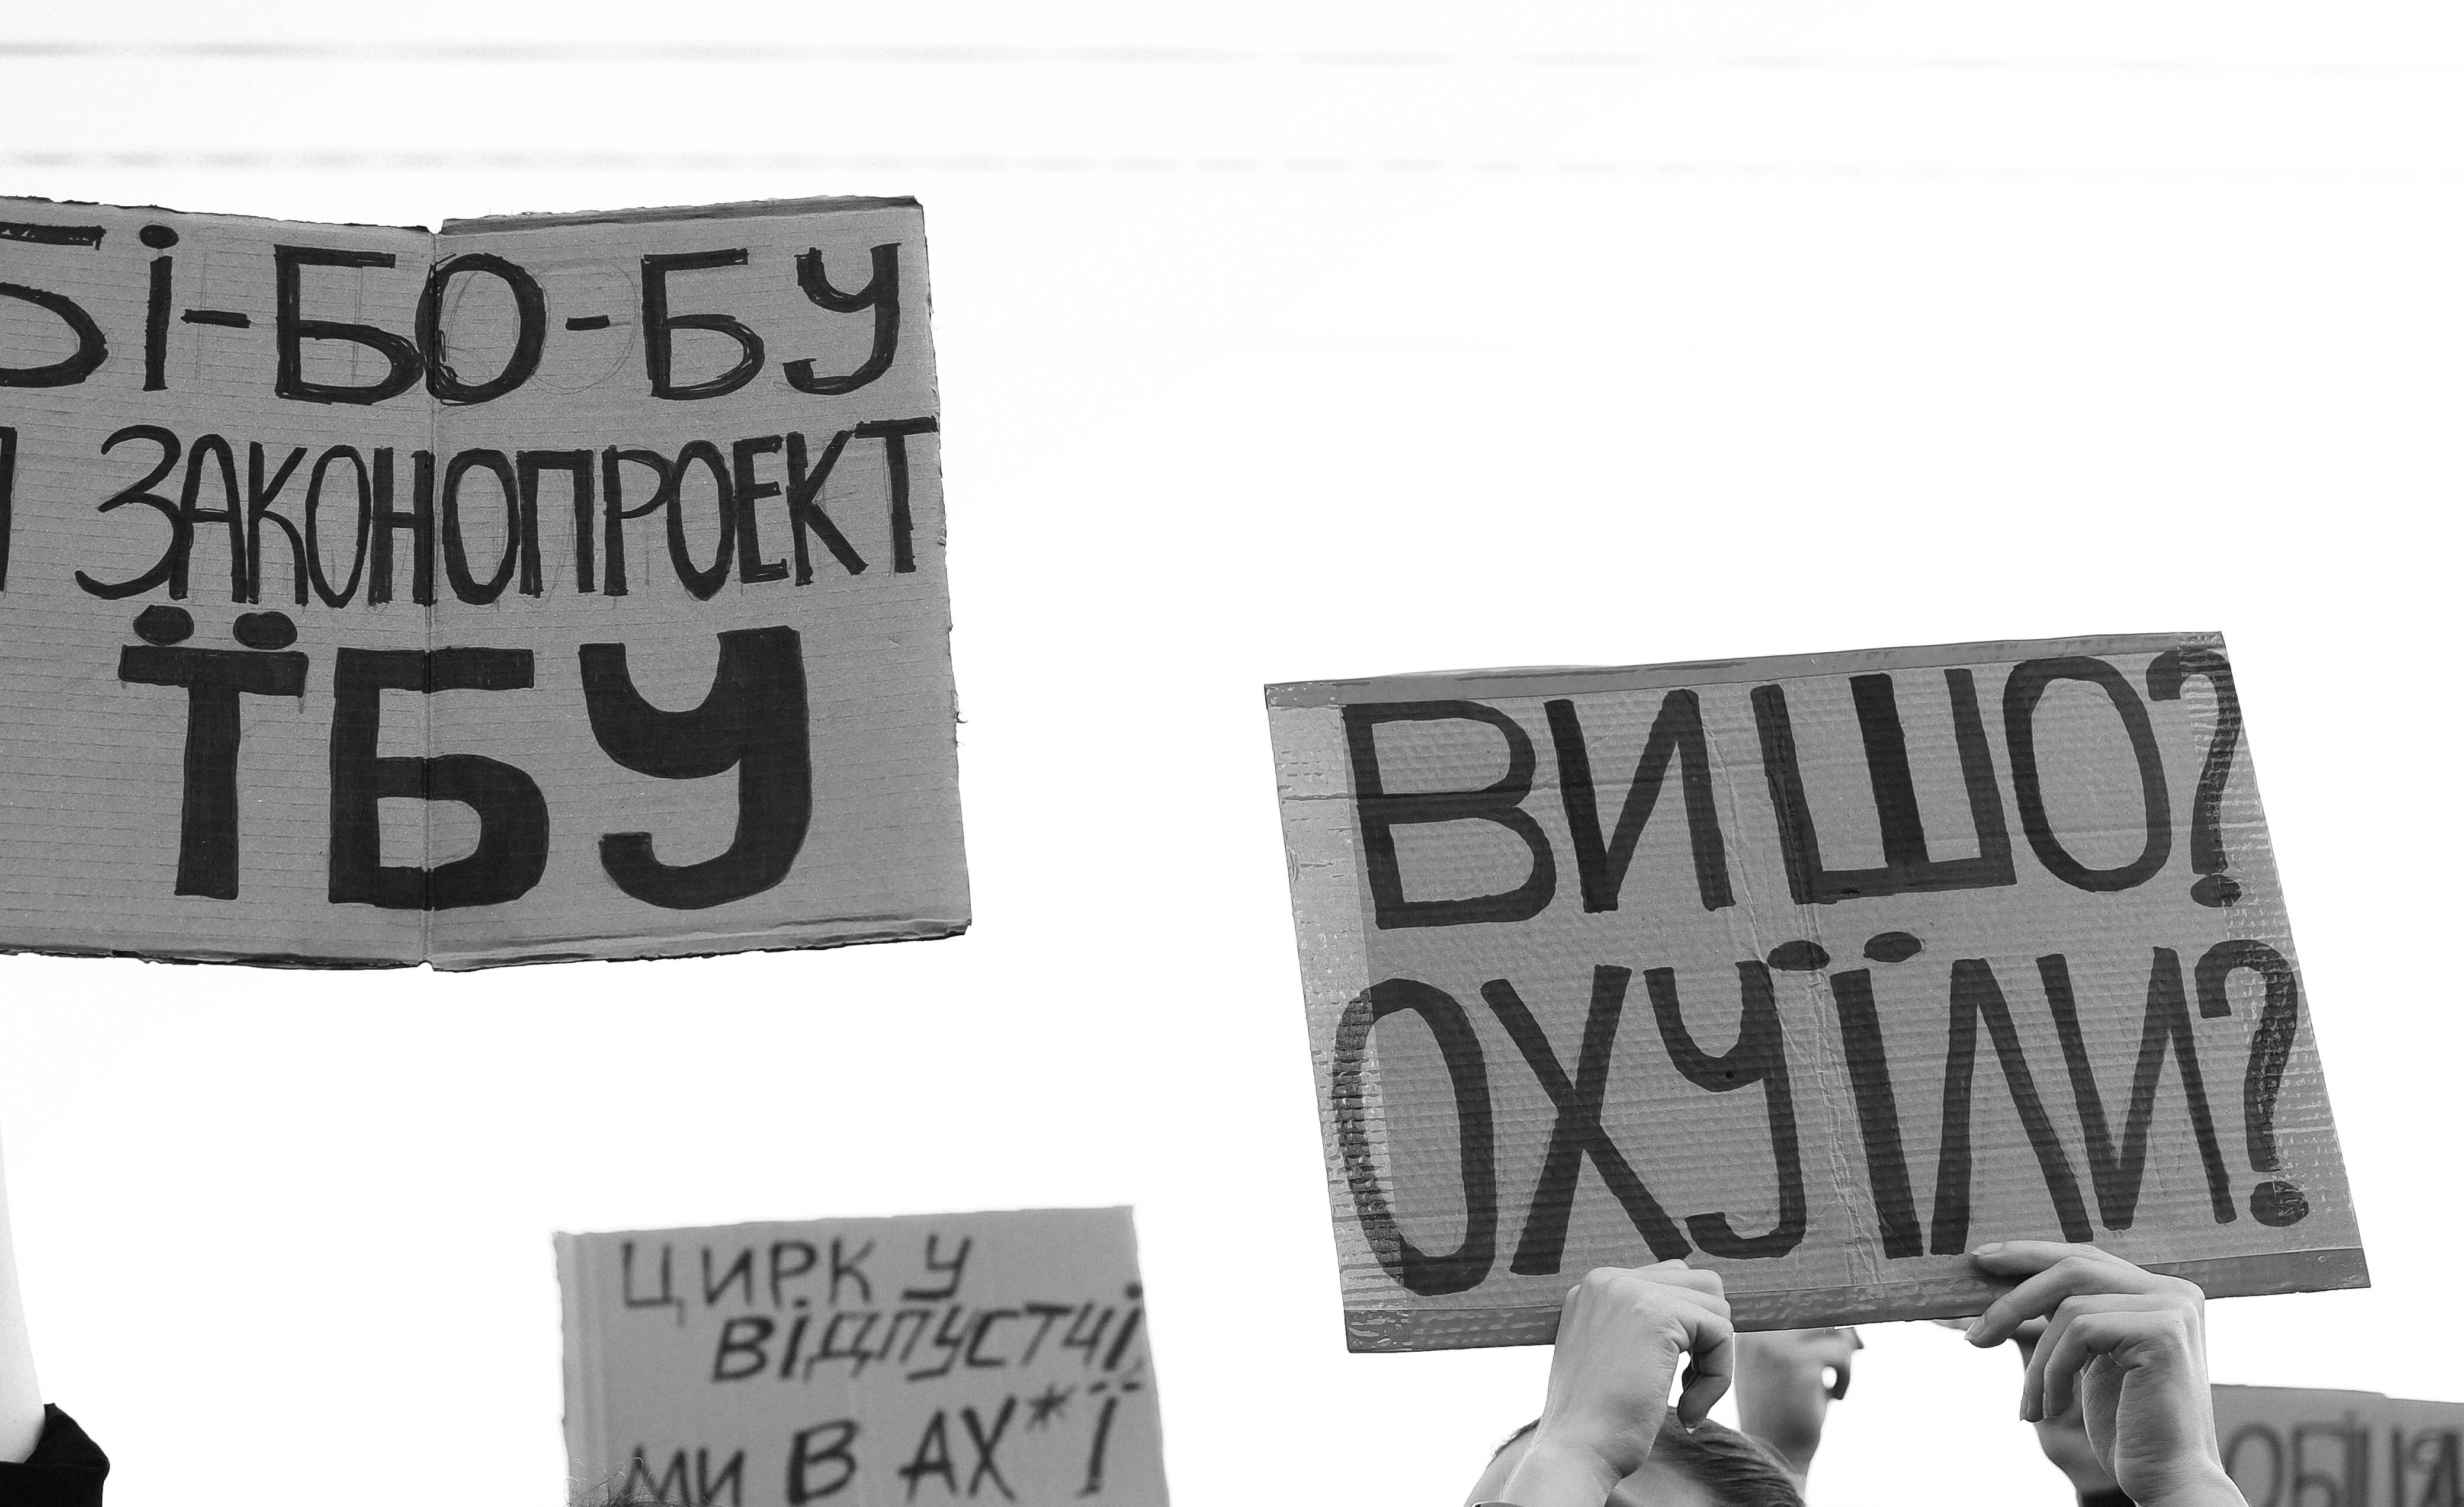 БІ-БО-БУ
ЗАКОНОПРОЕКТ
ЇБУ
ВИ ШО?
ОХУЇЛИ?
ЦИРК У
ВІДПУСТЦІ,
МИ В АХ*Ї